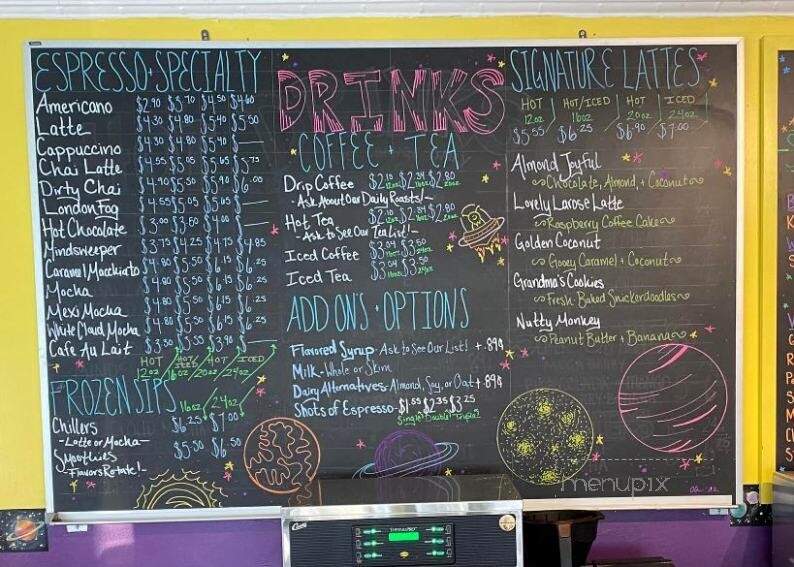 ESPRESSO + SPECIALTY
Americano $2.90 $3.70 $4.50 $4.60
Latte $4.30 $4.80 $5.40 $5.50
Cappuccino $4.30 $4.80 $5.40
Chai Latte $4.55 $5.05 $5.65 $5.75
Dirty Chai $4.90 $5.50 $5.90 $6.00
London Fog $4.55 $5.05 $5.65
Hot Chocolate $3.00 $3.50 $4.00
Mindsweeper $3.75 $4.25 $4.75 $4.85
Caramel Macchiato $4.80 $5.50 $6.15 $6.25
Mocha $4.80 $5.50 $6.15 $6.25
Mexi Mocha $4.80 $5.50 $6.15 $6.25
White Cloud Mocha $4.80 $5.50 $6.15 $6.25
Cafe Au Lait $3.30 $3.55 $3.90
HOT HOT/ICED HOT ICED
12oz 16oz 20oz 24oz
FROZEN SIPS
16oz 24oz
Chillers $6.25 $7.00
-Latte or Mocha-
Smoothies $5.50 $6.50
-Flavors Rotate!-
DRINKS
COFFEE + TEA
Drip Coffee $2.10 $2.39 $2.80
12oz 16oz 20oz
-Ask About Our Daily Roasts!-
Hot Tea $2.10 $2.39 $2.80
12oz 16oz 20oz
-Ask to See Our Tea List!-
Iced Coffee $3.09 $3.50
16oz 24oz
Iced Tea $3.09 $3.50
16oz 24oz
ADD ONS + OPTIONS
Flavored Syrup - Ask to See Our List! + .89¢
Milk - Whole or Skim
Dairy Alternatives - Almond, Soy, or Oat + .89¢
Shots of Espresso - $1.55 $2.35 $3.25
Single! Double! Triple!
SIGNATURE LATTES
HOT HOT/ICED HOT ICED
12oz 16oz 20oz 24oz
$5.55 $6.25 $6.90 $7.00
Almond Joyful
Chocolate, Almond, + Coconut
Lovely Larose Latte
Raspberry Coffee Cake
Golden Coconut
Gooey Caramel + Coconut
Grandma's Cookies
Fresh Baked Snickerdoodles
Nutty Monkey
Peanut Butter + Banana
menupix